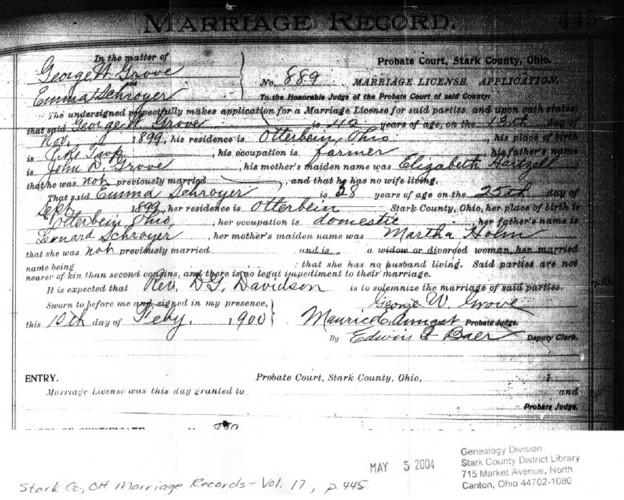 MARRIAGE RECORD. 445
In the matter of
George W. Grove
and
Emma Schroyer
Probate Court, Stark County, Ohio.
No. 889 MARRIAGE LICENSE, APPLICATION,
To the Honorable Judge of the Probate Court of said County:
The undersigned respectfully makes application for a Marriage License for said parties, and upon oath states;
that said George W. Grove is 42 years of age, on the 13th day of
Nov. 1899, his residence is Otterbein, Ohio, his place of birth
is , his occupation is farmer , his father's name
is John D. Grove , his mother's maiden name was Elizabeth Hertzell
that he was not previously married , and that he has no wife living.
That said Emma Schroyer is 28 years of age on the 25th day of
Sept. 1899, her residence is Otterbein Stark County, Ohio, her place of birth is
Otterbein Ohio, , her occupation is domestic , her father's name is
Leonard Schroyer , her mother's maiden name was Martha Holm
that she was not previously married and is a widow or divorced woman, her married
name being ; that she has no husband living. Said parties are not
nearer of kin than second cousins, and there is no legal impediment to their marriage.
It is expected that Rev. D. G. Davidson is to solemnize the marriage of said parties.
Sworn to before me and signed in my presence, George W. Grove
this 10th day of Feby. 1900 Maurice E. Aungst Probate Judge.
By Edwin S Baer Deputy Clerk.
ENTRY. Probate Court, Stark County, Ohio, 1
Marriage License was this day granted to and
Probate Judge.
MARRIAGE CERTIFICATE No. 889
MAY 5 2004
Genealogy Division
Stark County District Library
715 Market Avenue, North
Canton, Ohio 44702-1080
Stark Co, OH Marriage Records - Vol. 17, p 445